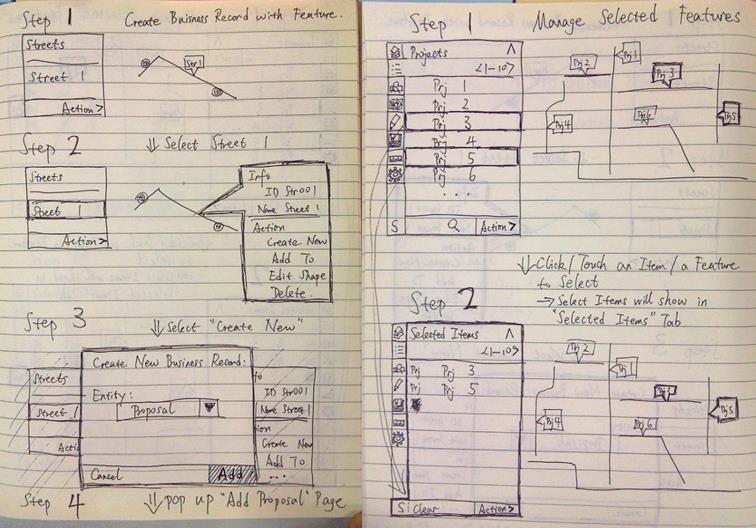 Step 1 Create Buisness Record with Feature.
Streets
Street 1
Action >
Str1
Step 2 ⇓ Select Street 1
Streets
Street 1
Action >
Info
ID Str001
Name Street 1
Action
Create New
Add To
Edit Shape
Delete.
Step 3 ⇓ Select "Create New"
Streets
Street 1
Acti
Create New Business Record:
Entity:
Proposal ▼
Cancel Add
fo
ID Str001
Name Street 1
tion
Create New
Add To
...
Step 4 ⇓ POP up "Add Proposal" Page
Step 1 Manage Selected Features
Projects ∧
<1-10>
Prj 1
Prj 2
Prj 3
Prj 4
Prj 5
Prj 6
...
S Q Action >
Prj 2
Prj 1
Prj 3
Prj 4
Prj 6
Prj 5
⇓ Click / Touch an Item / a Feature
to Select
→ Select Items will show in
"Selected Items" Tab
Step 2
Selected Items ∧
<1-10>
Prj Prj 3
Prj Prj 5
S: Clear Action >
Prj 2
Prj 1
Prj 3
Prj 4
Prj 6
Prj 5